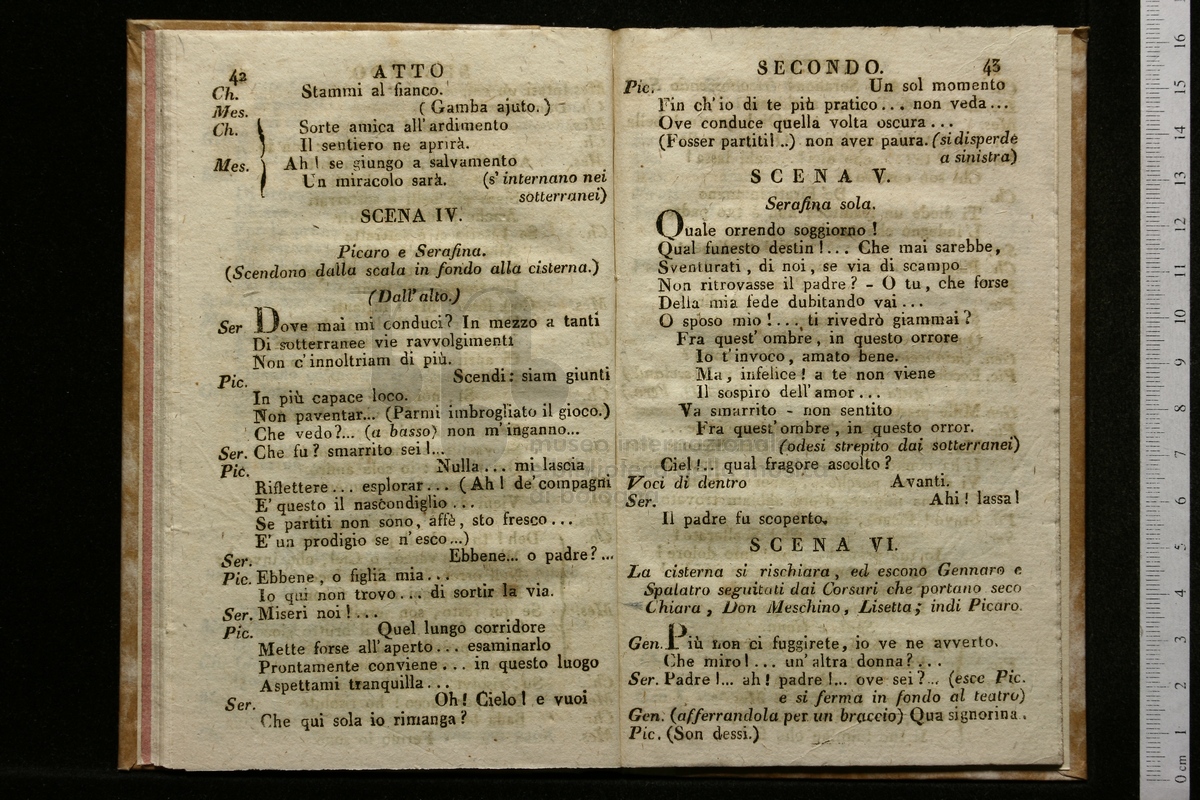 42 ATTO
Ch. Stammi al fianco.
Mes. ( Gamba ajuto. )
Ch. Sorte amica all' ardimento
Il sentiero ne aprirà.
Mes. Ah! se giungo a salvamento
Un miracolo sarà. (s' internano nei
sotterranei)
SCENA IV.
Picaro e Serafina.
(Scendono dalla scala in fondo alla cisterna.)
(Dall' alto.)
Ser Dove mai mi conduci? In mezzo a tanti
Di sotterranee vie ravvolgimenti
Non c' innoltriam di più.
Pic. Scendi: siam giunti
In più capace loco.
Non paventar... (Parmi imbrogliato il gioco.)
Che vedo?... (a basso) non m' inganno...
Ser. Che fu? smarrito sei!...
Pic. Nulla... mi lascia
Riflettere... esplorar... (Ah! de' compagni
E' questo il nascondiglio...
Se partiti non sono, affè, sto fresco...
E' un prodigio se n' esco...)
Ser. Ebbene... o padre?...
Pic. Ebbene, o figlia mia...
Io qui non trovo... di sortir la via.
Ser. Miseri noi!...
Pic. Quel lungo corridore
Mette forse all' aperto... esaminarlo
Prontamente conviene... in questo luogo
Aspettami tranquilla...
Ser. Oh! Cielo! e vuoi
Che qui sola io rimanga?
SECONDO. 43
Pic. Un sol momento
Fin ch' io di te più pratico... non veda...
Ove conduce quella volta oscura...
(Fosser partiti!..) non aver paura. (si disperde
a sinistra)
SCENA V.
Serafina sola.
Quale orrendo soggiorno!
Qual funesto destin!... Che mai sarebbe,
Sventurati, di noi, se via di scampo
Non ritrovasse il padre? - O tu, che forse
Della mia fede dubitando vai...
O sposo mio!... ti rivedrò giammai?
Fra quest' ombre, in questo orrore
Io t' invoco, amato bene.
Ma, infelice! a te non viene
Il sospiro dell' amor...
Va smarrito - non sentito
Fra quest' ombre, in questo orror.
(odesi strepito dai sotterranei)
Ciel!.. qual fragore ascolto?
Voci di dentro Avanti.
Ser. Ahi! lassa!
Il padre fu scoperto.
SCENA VI.
La cisterna si rischiara, ed escono Gennaro e
Spalatro seguitati dai Corsari che portano seco
Chiara, Don Meschino, Lisetta; indi Picaro.
Gen. Più non ci fuggirete, io ve ne avverto.
Che miro!... un' altra donna?...
Ser. Padre!... ah! padre!... ove sei?... (esce Pic.
e si ferma in fondo al teatro)
Gen. (afferrandola per un braccio) Qua signorina.
Pic. (Son dessi.)
0 cm 1 2 3 4 5 6 7 8 9 10 11 12 13 14 15 16